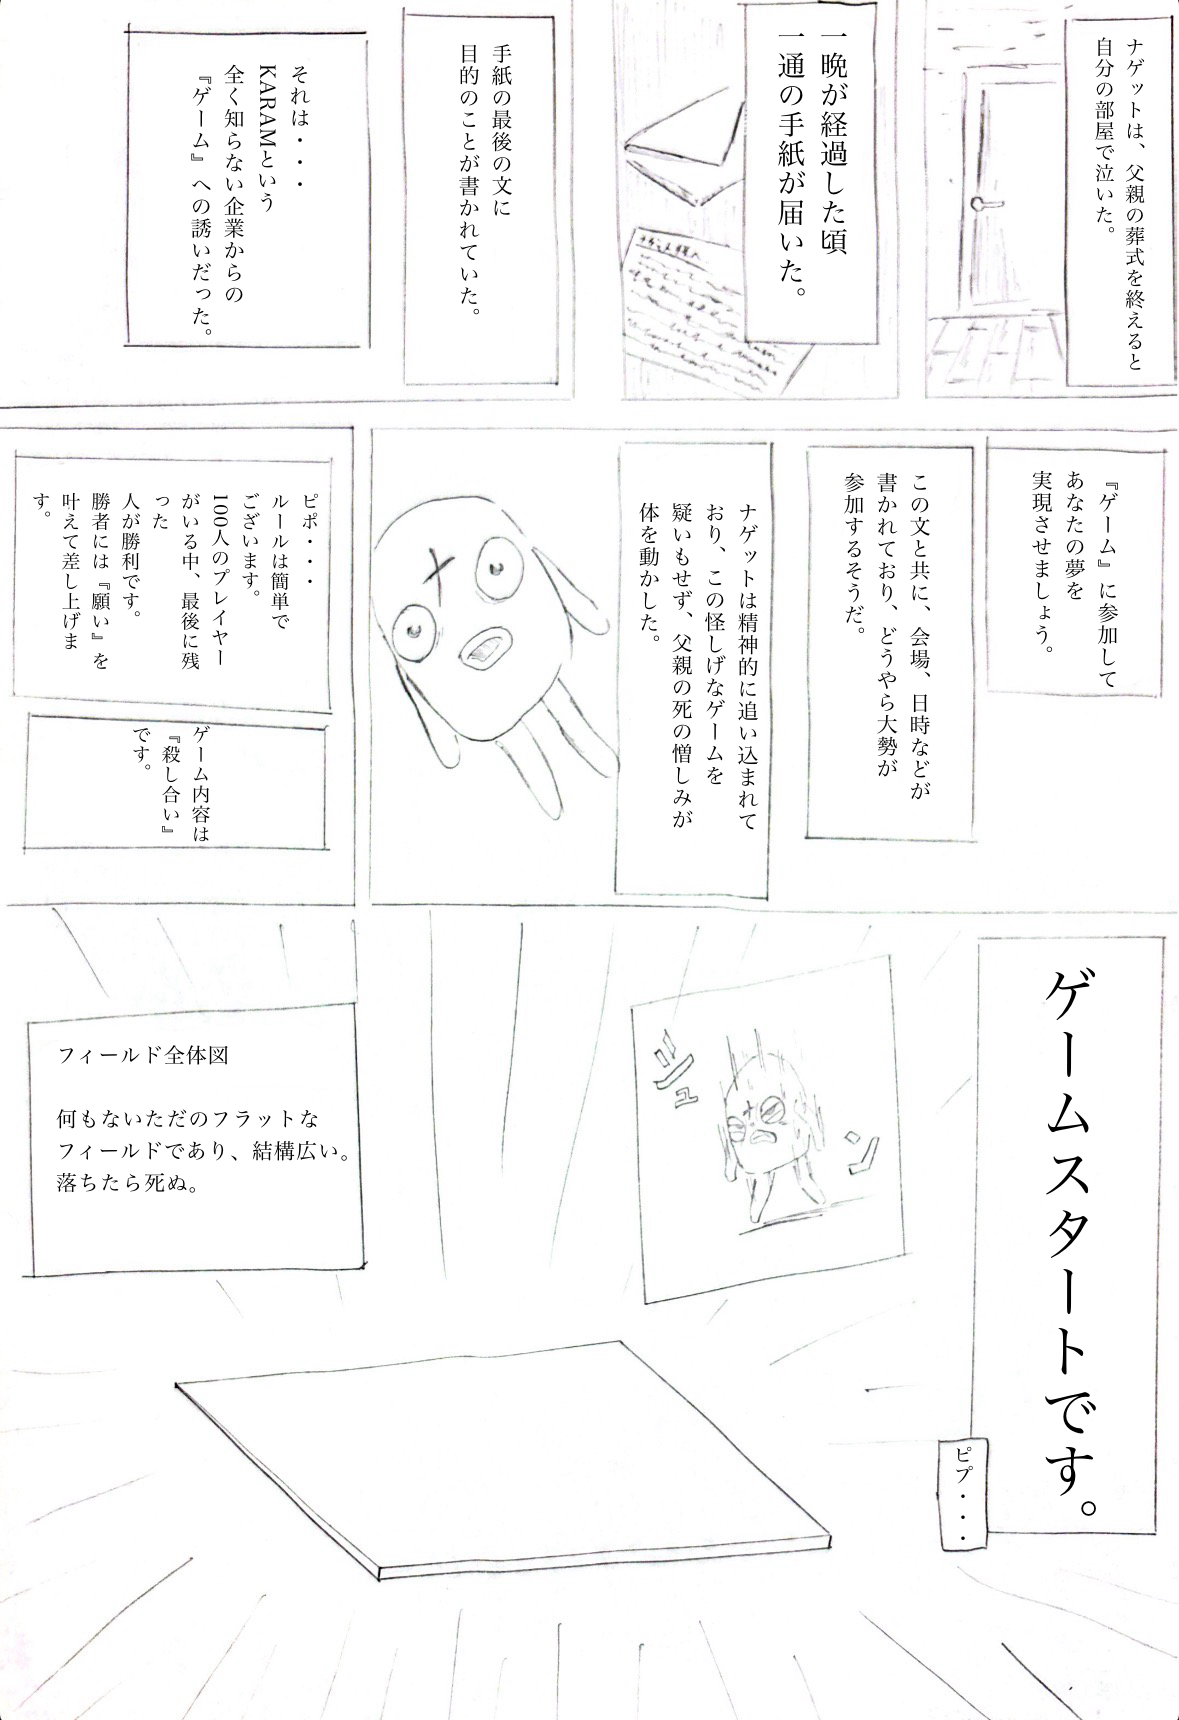 ナゲットは、父親の葬式を終えると
自分の部屋で泣いた。
一晩が経過した頃
一通の手紙が届いた。
手紙の最後の文に
目的のことが書かれていた。
それは・・・
KARAMという
全く知らない企業からの
『ゲーム』への誘いだった。
『ゲーム』に参加して
あなたの夢を
実現させましょう。
この文と共に、会場、日時などが
書かれており、どうやら大勢が
参加するそうだ。
ナゲットは精神的に追い込まれて
おり、この怪しげなゲームを
疑いもせず、父親の死の憎しみが
体を動かした。
ピポ・・・
ルールは簡単で
ございます。
100人のプレイヤー
がいる中、最後に残
った
人が勝利です。
勝者には『願い』を
叶えて差し上げま
す。
ゲーム内容は
『殺し合い』
です。
ゲームスタートです。
ピプ・・・
ジュ
ン
フィールド全体図
何もないただのフラットな
フィールドであり、結構広い。
落ちたら死ぬ。